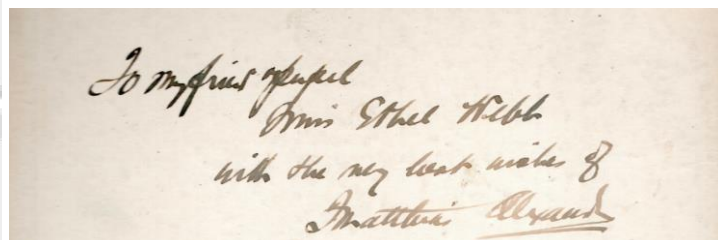 To my friend & pupil
Miss Ethel Webb
with the very best wishes of
F Matthias Alexander